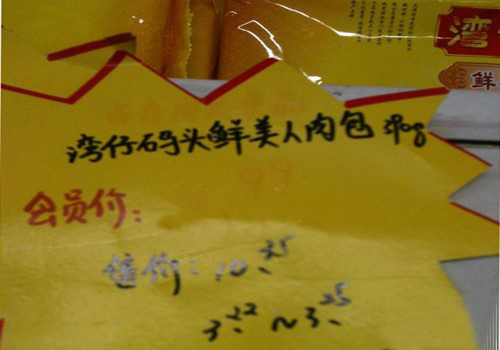 湾
鲜
湾仔码头鲜美人肉包 390g
会员价:
售价: 10.25
3.22~3.25